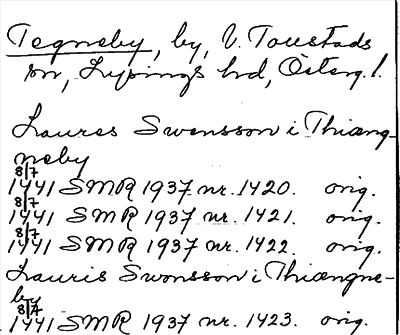 Tegneby, by, V. Toustads
sn, Lysings hd, Österg. l.
Laures Swensson i Thiæng-
neby
8/7
1441 SMR 1937 nr. 1420. orig.
8/7
1441 SMR 1937 nr. 1421. orig.
8/7
1441 SMR 1937 nr. 1422. orig.
Lauris Swensson i Thiængne-
by
8/7
1441 SMR 1937 nr. 1423. orig.